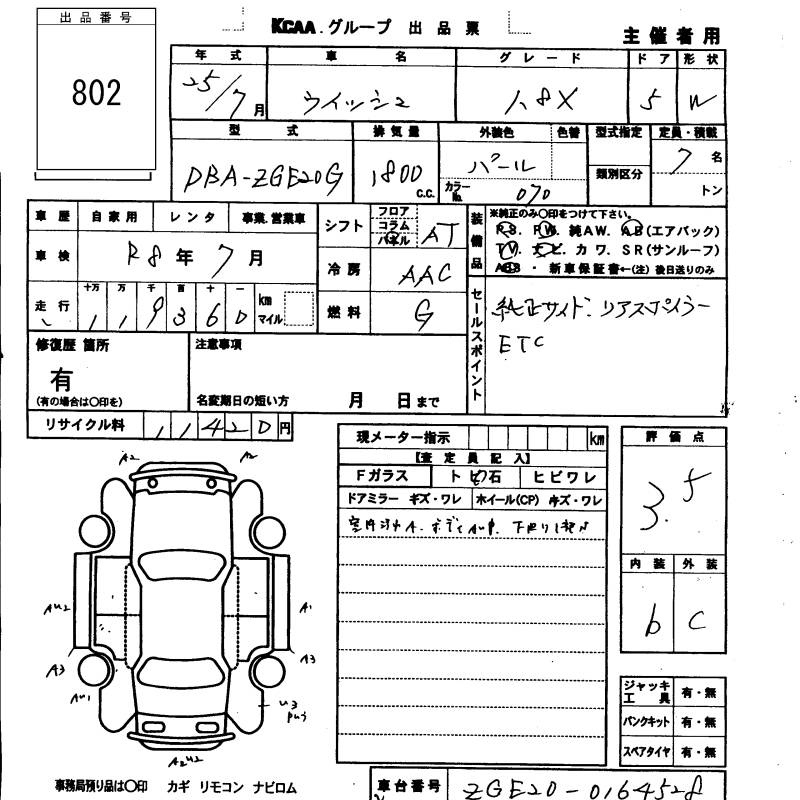 出品番号
802
KCAA.グループ 出品票
主催者用
年式 車名 グレード ドア 形状
25/7月 ウィッシュ 1.8X 5 W
型式 排気量 外装色 色替 型式指定 定員・積載
類別区分
DBA-ZGE20G 1800 c.c. パール カラーNo. 070 7名
トン
車歴 自家用 レンタ 事業.営業車
シフト フロア コラム パネル AT
車検 R8年 7月
冷房 AAC
走行 十万 万 千 百 十 一
119360 km マイル
燃料 G
装備品 ※純正のみ〇印をつけて下さい。
P.S. P.W. 純AW. AB(エアバック)
T V. ナビ. カワ. SR(サンルーフ)
ABS・新車保証書←(注)後日送りのみ
セールスポイント
純正サイド. リアスポイラー
ETC
修復歴 箇所
有
(有の場合は〇印を)
注意事項
名変期日の短い方 月 日まで
リサイクル料 11420円
現メーター指示 km
【査定員記入】
Fガラス トビ石 ヒビワレ
ドアミラー キズ・ワレ ホイール(CP) キズ・ワレ
評価点
3.5
内装 外装
b C
A2 A2
AU2 A1
A3 A3
AU1 U3
A2U2
ジャッキ工具 有・無
パンクキット 有・無
スペアタイヤ 有・無
事務局預り品は〇印 カギ リモコン ナビロム
車台番号 ZGE20-0164528